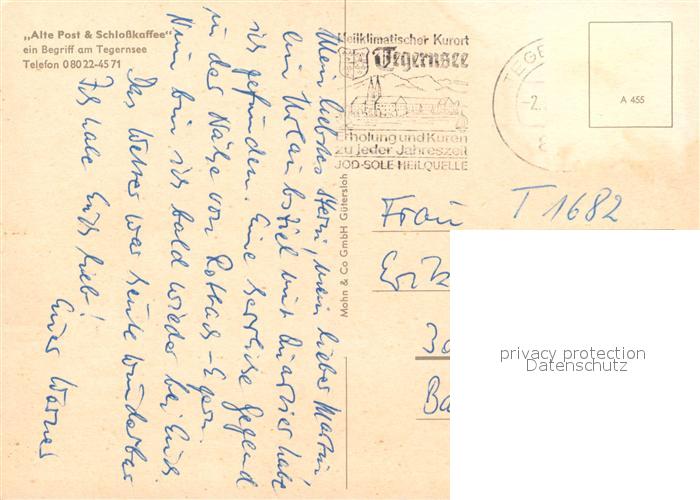 „Alte Post & Schloßkaffee“
ein Begriff am Tegernsee
Telefon 0 80 22-45 71
Mein liebster Stern, mein lieber Martin!
Ein Urlaubsziel mit Quartier habe
ich gefunden. Eine herrliche Gegend
in der Nähe von Rottach-Egern.
Nun bin ich bald wieder bei Euch
Das Wetter war heute wunderbar
Ich habe Euch lieb!
Euer Werner
Mohn & Co GmbH Gütersloh
Heilklimatischer Kurort
Tegernsee
Erholung und Kuren
zu jeder Jahreszeit
JOD-SOLE-HEILQUELLE
TEGE
-2.
A 455
T 1682
Frau
privacy protection
Datenschutz